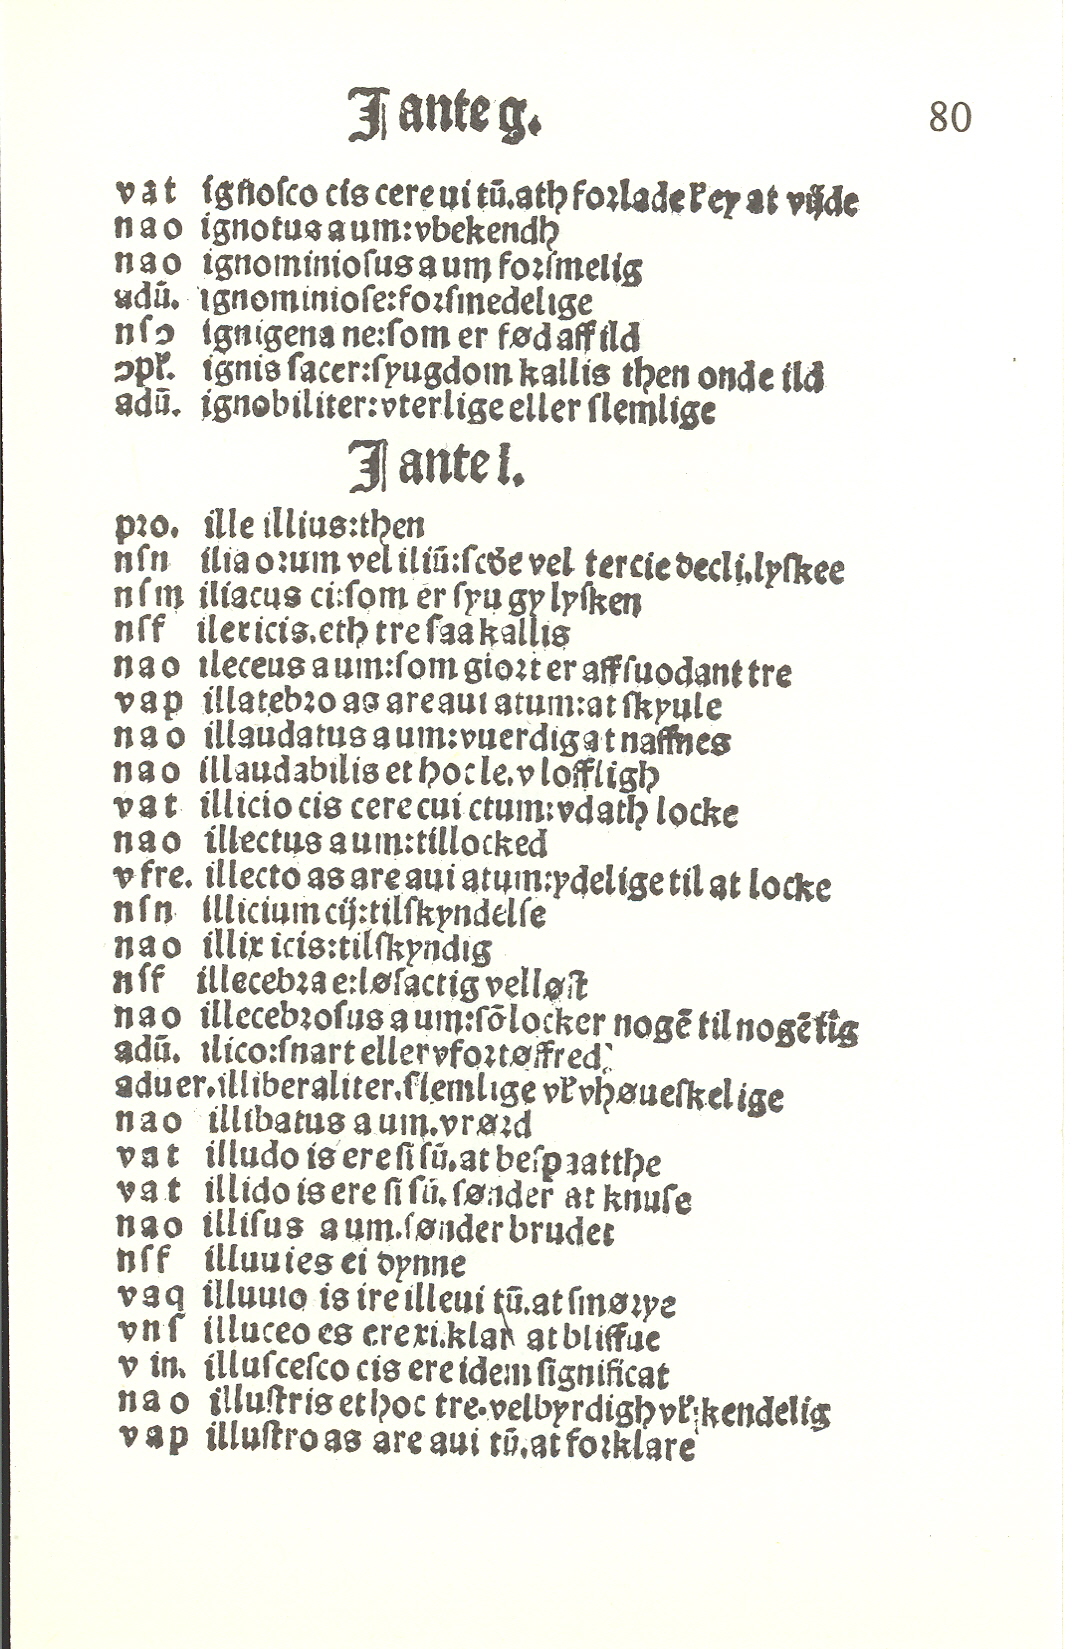 J ante g.
80
v a t ignosco cis cere ui tū.ath forlade eꝉ ey at vijde
n a o ignotus a um:vbekendh
n a o ignominiosus a um forsmelig
adū. ignominiose:forsmedelige
nſɔ ignigena ne:som er fød aff ild
ɔpꝉ. ignis sacer:syugdom kallis then onde ild
adū. ignobiliter:vterlige eller slemlige
J ante l.
pro. ille illius:then
nſn ilia orum vel iliū:scde vel tercie decli.lyskee
nſm iliacus ci:som er syu gy lysken
nſf ilex icis.eth tre saa kallis
n a o ileceus a um:som giort er aff suodant tre
v a p illatebro as are aui atum:at skyule
n a o illaudatus a um:vuerdig at naffnes
n a o illaudabilis et hoc le.v loffligh
v a t illicio cis cere cui ctum:vdath locke
n a o illectus a um:tillocked
v fre. illecto as are aui atum:ydelige til at locke
nſn illicium cij:tilskyndelse
n a o illix icis:tilskyndig
nſf illecebra e:løsactig velløst
n a o illecebrosus a um:sō locker nogē til nogē tīg
adū. ilico:snart eller vfortøffred
aduer.illiberaliter.slemlige vꝉ vhøueskelige
n a o illibatus a um.vrørd
v a t illudo is ere si sū.at bespratthe
v a t illido is ere si sū.sønder at knuse
n a o illisus a um.sønder brudet
nſf illuuies ei dynne
v a q illuuio is ire illeui tū.at smørye
v n s illuceo es ere xi.klar at bliffue
v in. illuscesco cis ere idem significat
n a o illustris et hoc tre.velbyrdigh vꝉ kendelig
v a p illustro as are aui tū.at forklare